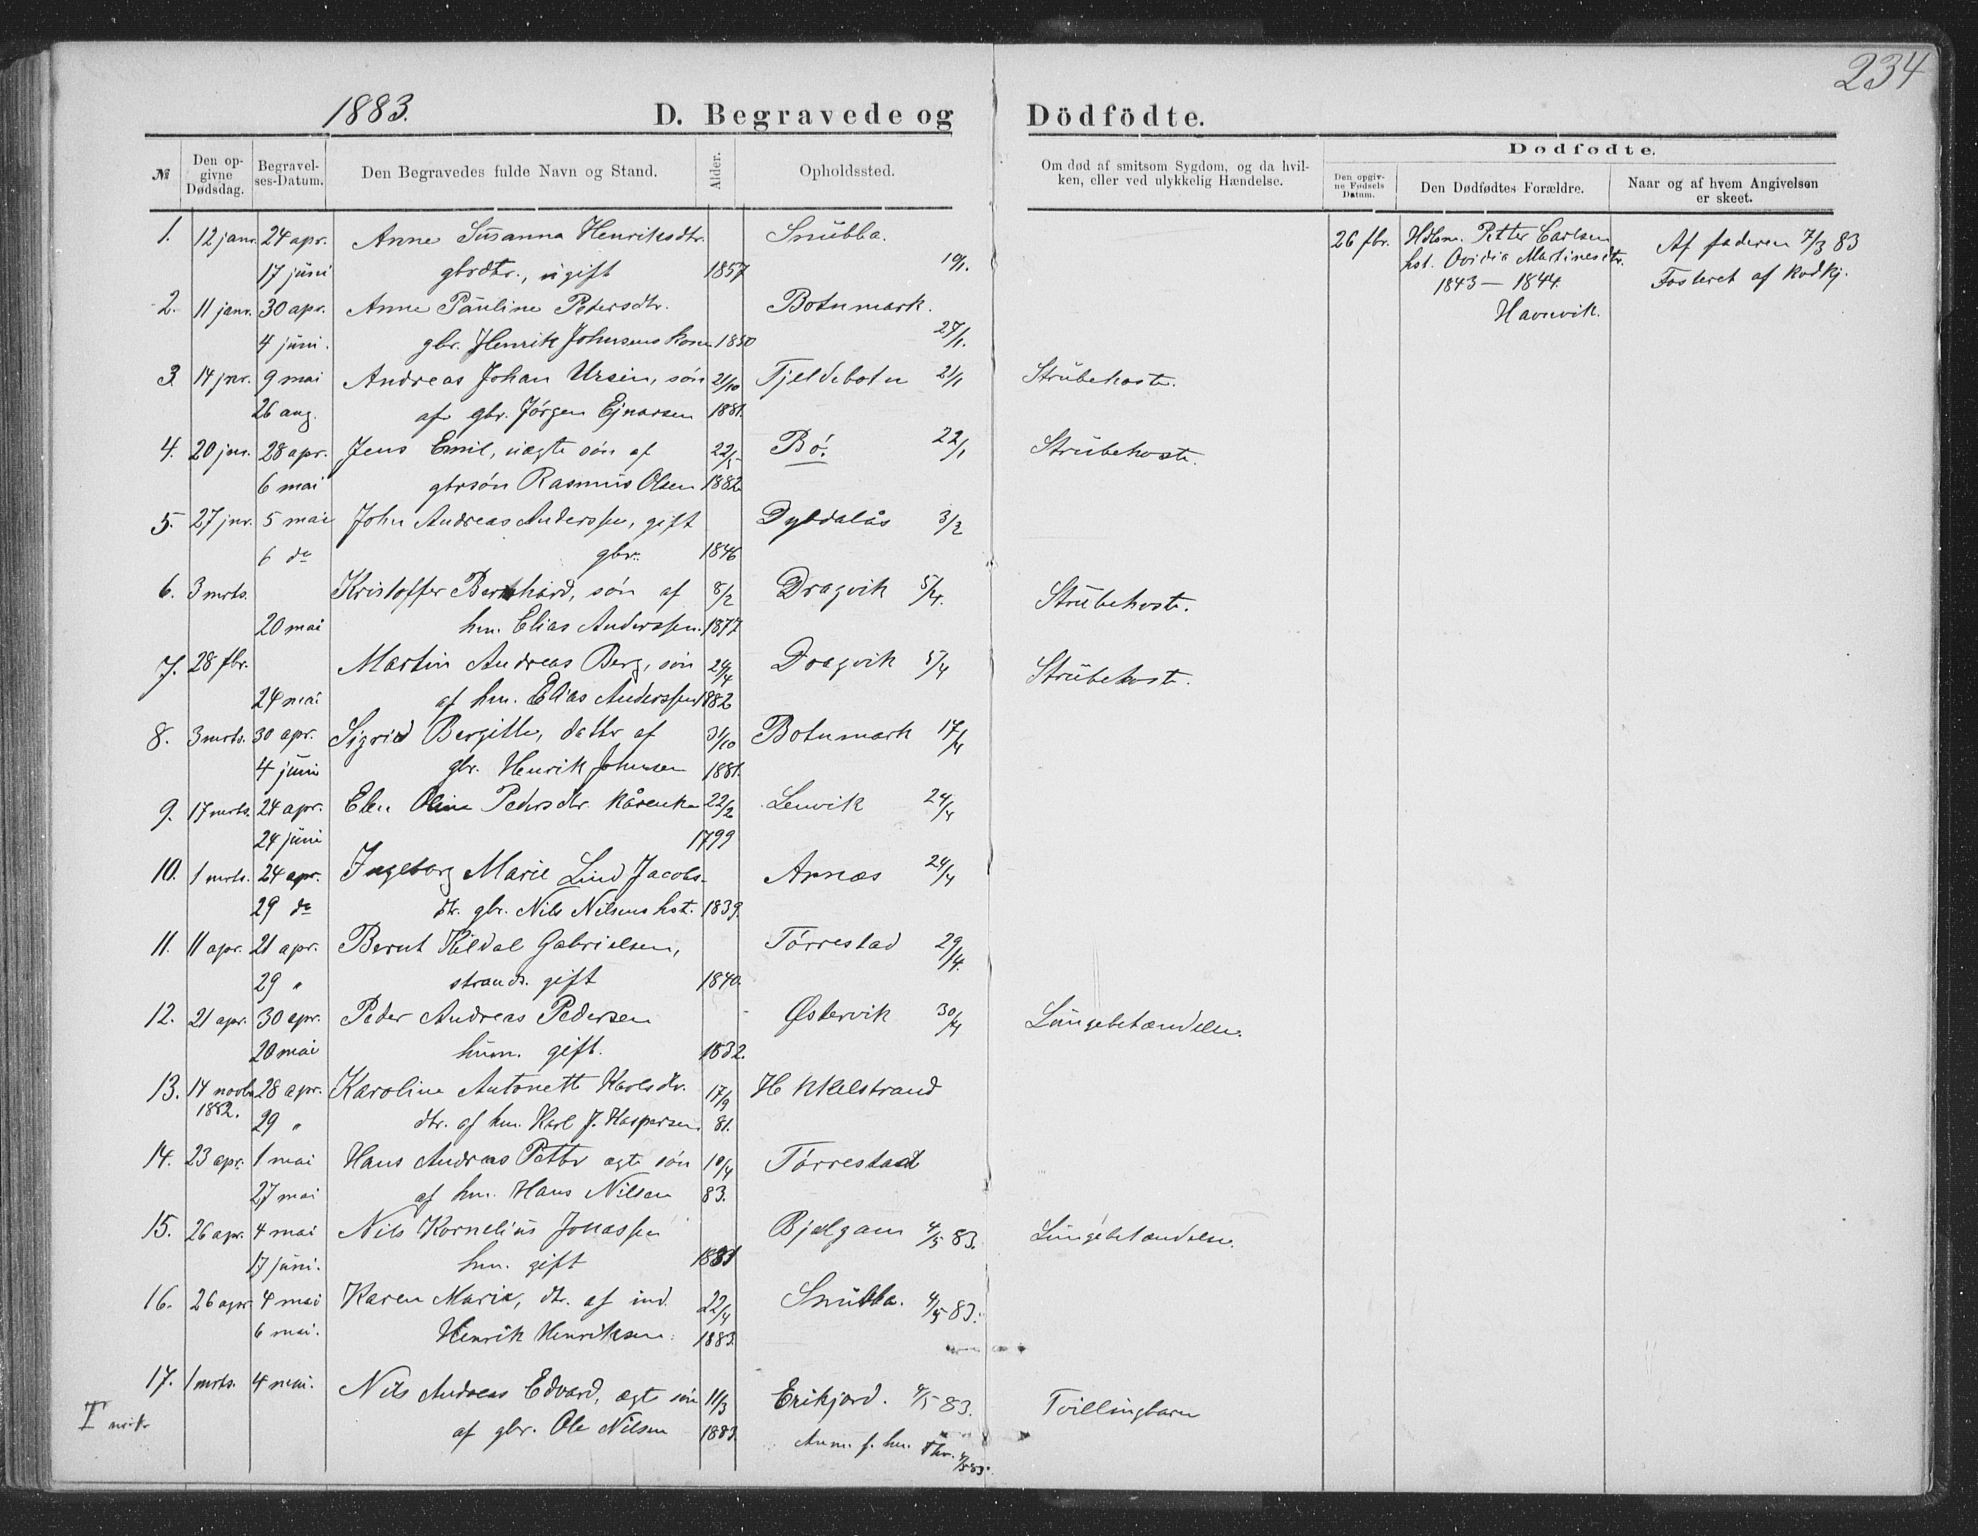 234
1883. D. Begravede og Dödfödte.
№ Den opgivne Dødsdag. Begravelses-Datum. Den Begravedes fulde Navn og Stand. Alder. Opholdssted. Om død af smitsom Sygdom, og da hvilken, eller ved ulykkelig Hændelse.
Dødfødte.
Den opgivne Fødsels Datum. Den Dødfødtes Forældre. Naar og af hvem Angivelsen er skeet.
1. 12 janr. 24 apr. Anne Susanna Henriksdtr. Snubba.
17 juni gbrdtr., ugift 1857 19/1.
26 fbr. Hdlsm. Petter Carlsen Af faderen 7/3 83
hst. Ovidia Martinesdtr. Fosteret af kodkj.
1843 – 1844.
Havnvik.
2. 11 janr. 30 apr. Anne Pauline Petersdtr. Botnmark.
4 juni. gbr. Henrik Johnsens kone 1850 27/1.
3. 14 jnr. 9 mai Andreas Johan Ursin, søn 21/10 Tjeldebotn 21/1 Strubehoste.
26 aug. af gbr. Jørgen Ejnarsen 1881.
4. 20 jnr. 28 apr. Jens Emil, uægte søn af 22/5 Bø. 22/1 Strubehoste.
6 mai gbrsøn Rasmus Olsen 1882
5. 27 jnr. 5 mai John Andreas Anderssen, gift Dybdalås 3/2
6 do gbr. 1846
6. 3 mrts. Kristoffer Bernhard, søn af 8/2 Dragvik 5/4. Strubehoste.
20 mai hm. Elias Anderssen. 1877
7. 28 fbr. Martin Andreas Berg, søn 24/4 Dragvik 5/4 Strubehoste.
24 mai af hm. Elias Anderssen 1882
8. 3 mrts. 30 apr. Sigrid Bergitte, datter af 31/10 Botnmark 17/4
4 juni gbr. Henrik Johnsen 1881.
9. 17 mrts. 24 apr. Elen Oline Pedersdtr. kårenke 22/2 Lenvik 24/4
24 juni 1799
10. 1 mrts. 24 apr. Ingeborg Marie Lind Jacobs- Arnæs 24/4
29 do dtr. gbr. Nils Nilsens hst. 1839.
11. 11 apr. 21 apr. Bernt Kildal Gabrielsen, Tørrestad 29/4.
29 " strands. gift 1840.
12. 21 apr. 30 apr. Peder Andreas Pedersen Østervik 30/4 Lungebetændelse.
20 mai husm. gift. 1832.
13. 14 novbr. 28 apr. Karoline Antonette Karlsdtr. 17/9 H kkelstrand
1882. 29 " dtr. af hm. Karl J. Kaspersen. 81.
14. 23 apr. 1 mai Hans Andreas Petter ægte søn 10/4 Tørrestad
27 mai af hm. Hans Nilsen 83.
15. 26 apr. 4 mai Nils Kornelius Jonassen Bjelgam 4/5 83. Lungebetændelse.
17 juni. hm. gift
16. 26 apr. 4 mai Karen Marie, dtr. af ind. 22/4 Snubba. 4/5 83.
6 mai. Henrik Henriksen. 1883.
17. 1 mrts. 4 mai. Nils Andreas Edvard, ægte søn 11/3 Erikjord. 4/5 83. Tvillingbarn
af gbr. Ole Nilsen 1883. Anm. f. hm.